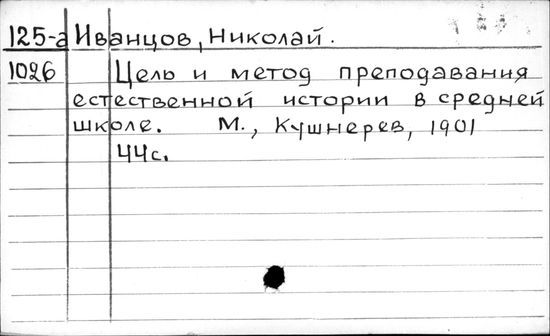 125-а Иванцов, Николай.
1026 Цель и метод преподавания
естественной истории в средней
школе. М., Кушнерев, 1901
44с.